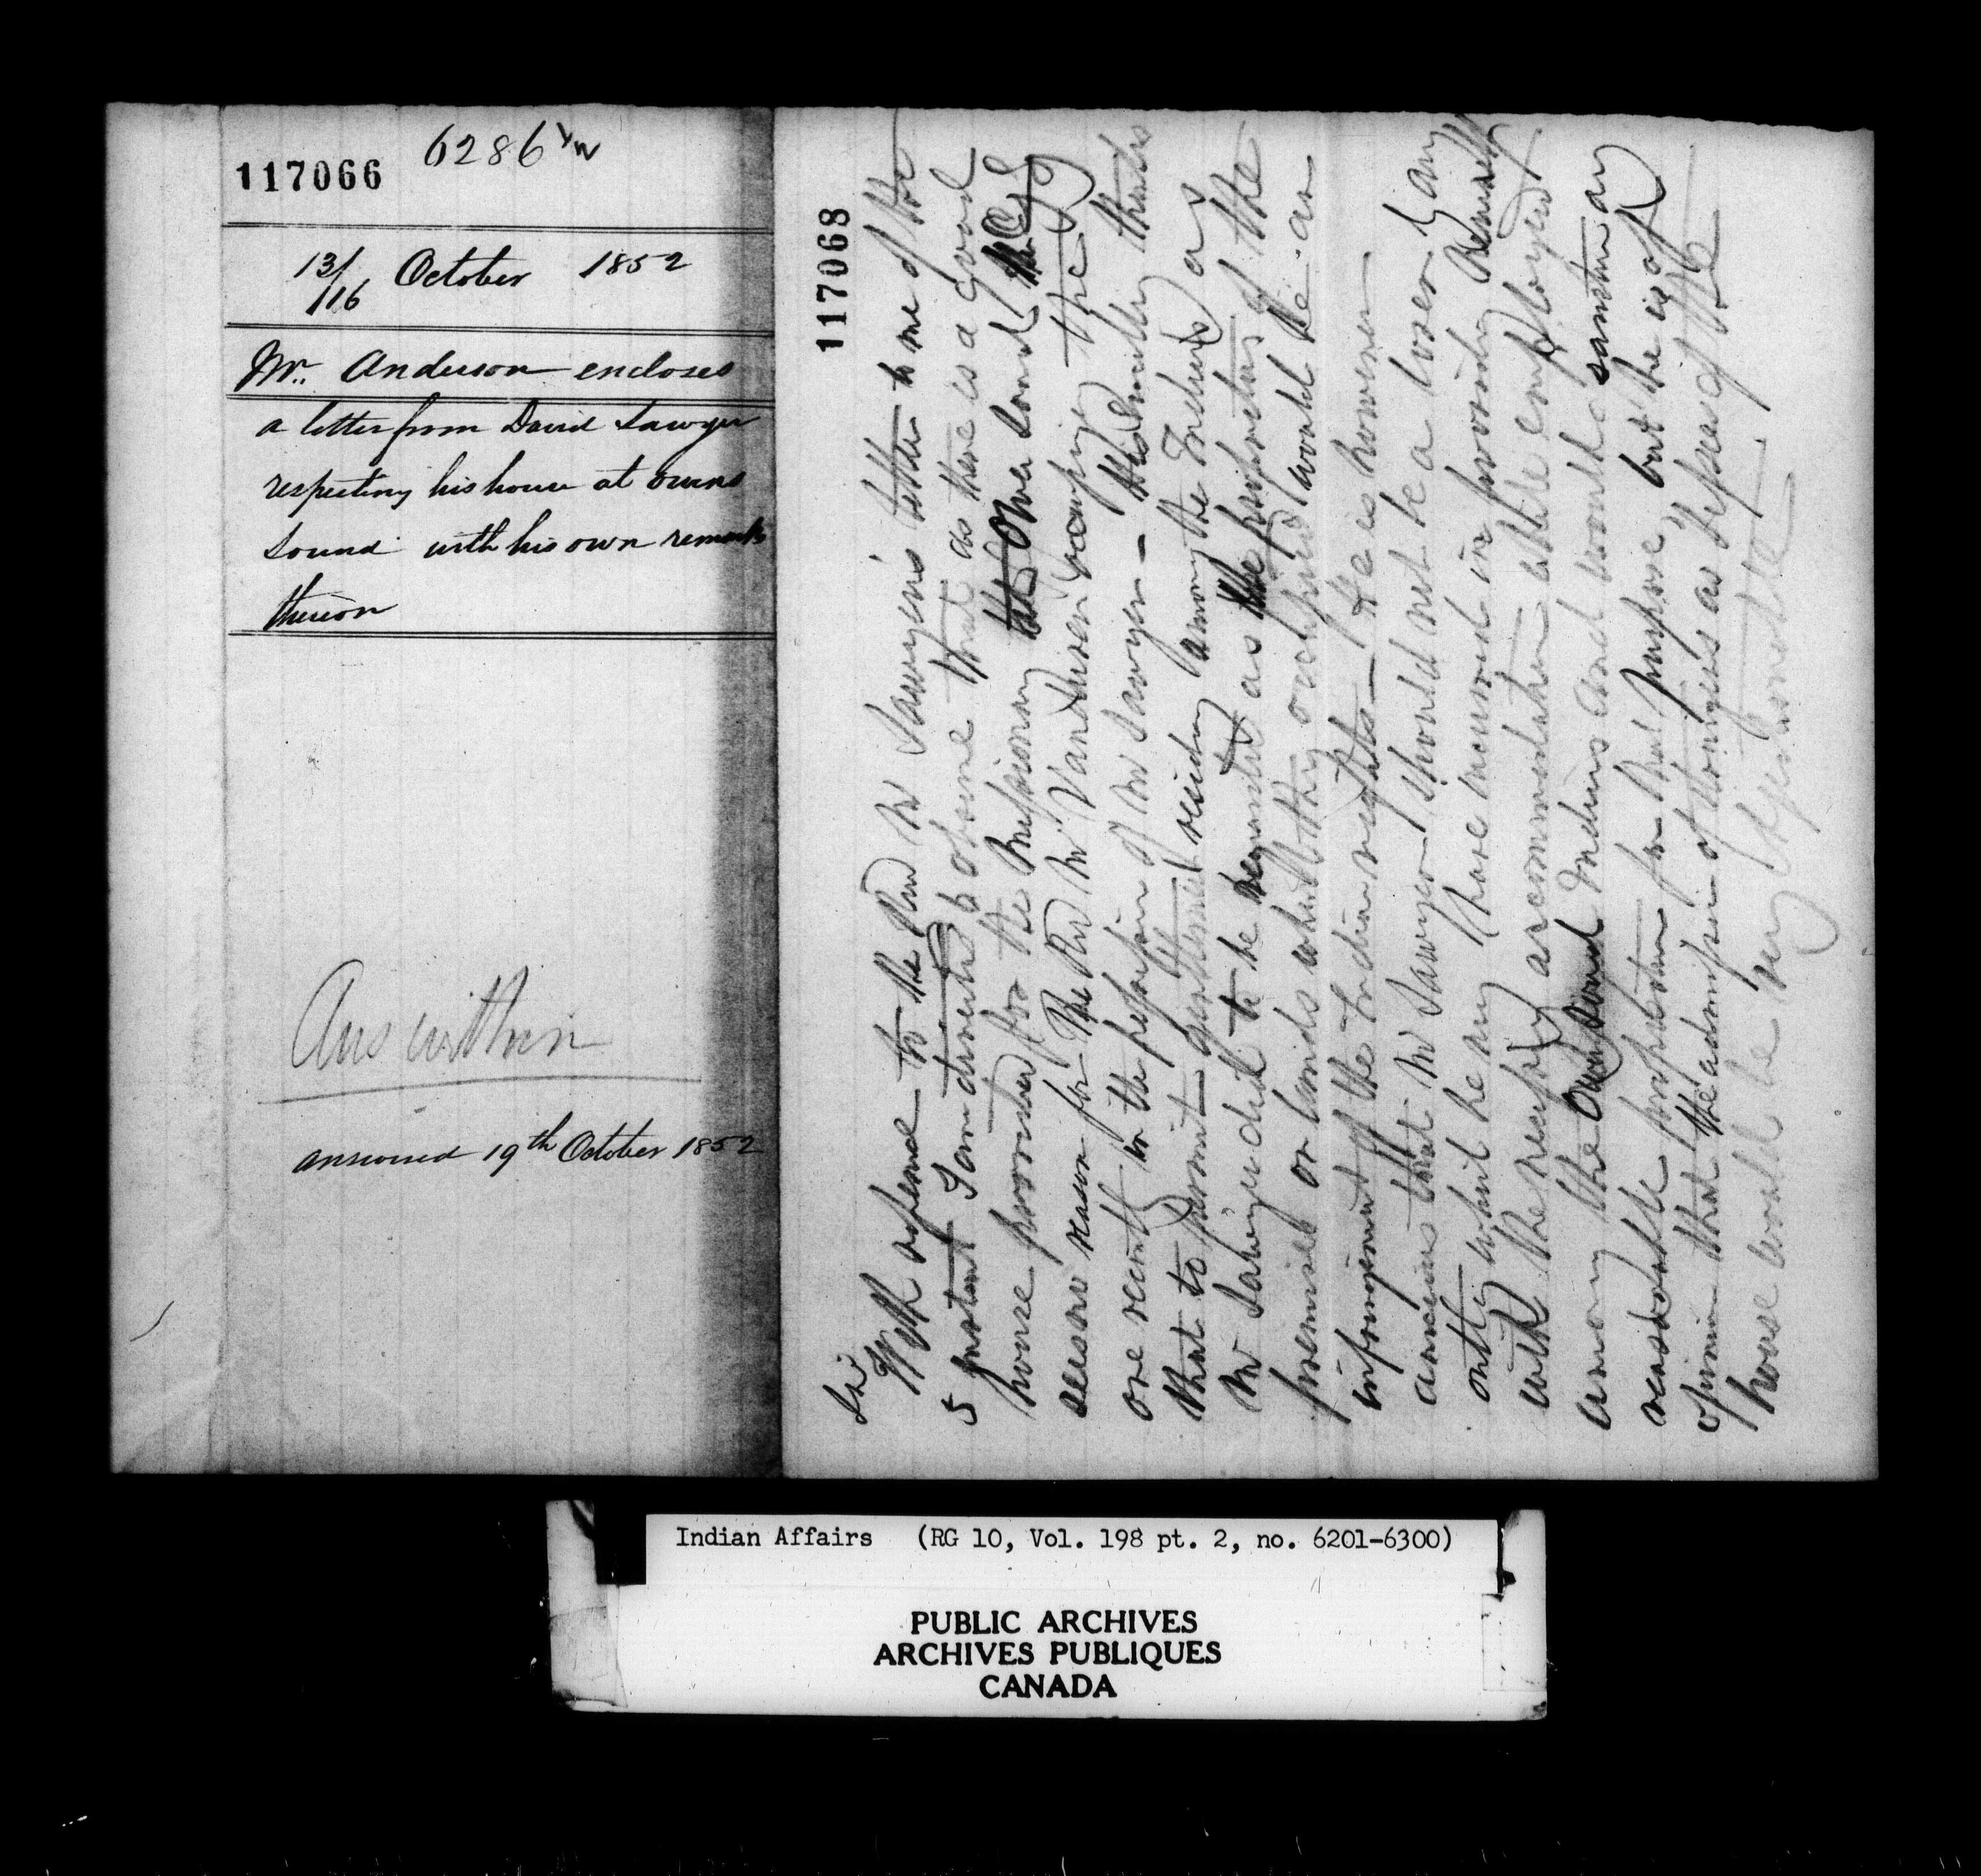 117066
6286 1/2
13/116 October 1852
Mr. Anderson encloses
a letter from David Sawyer
respecting his house at Owens
Sound with his own remarks
thereon
Ans within
answered 19th October 1852
117068
Sir
With reference to the Revd Mr Sawyer's letter to me of the
5 instant I am directed to observe that as there is a good
house provided for the Missionary at Owen Sound the
sees no reason for the Revd Mr Vandusen occupying the
one recently in the possession of Mr Sawyer - His Lordship thinks
that to permit gentlemen residing among the Indians as
Mr Sawyer did to be regarded as the proprietors of the
premises or lands which they occupied would be an
infringement of the Indian rights - He is however
anxious that Mr Sawyer should not be a loser by any
outlay which he may have incurred in providing himself
with the necessary accommodation while employed
among the Owen Sound Indians and would sanction any
reasonable proposition for that purpose, but he is of
opinion that the admission of strangers as lessees of the
house would be very objectionable
Indian Affairs (RG 10, Vol. 198 pt. 2, no. 6201-6300)
PUBLIC ARCHIVES
ARCHIVES PUBLIQUES
CANADA